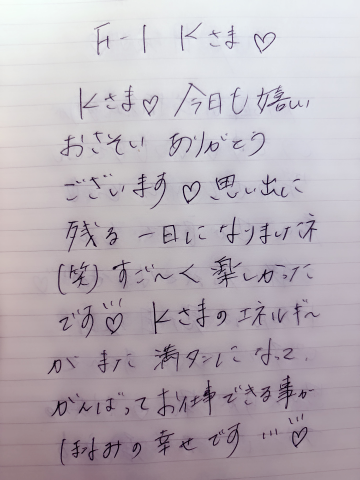 F-1 Kさま♡
Kさま♡ 今日も嬉しい
おさそい ありがとう
ございます♡ 思い出に
残る 一日に なりましたネ
(笑) すご〜く 楽しかった
です♡ Kさまの エネルギ〜
が また 満タンに なって、
がんばって お仕事できる事が
K なみの 幸せです …♡